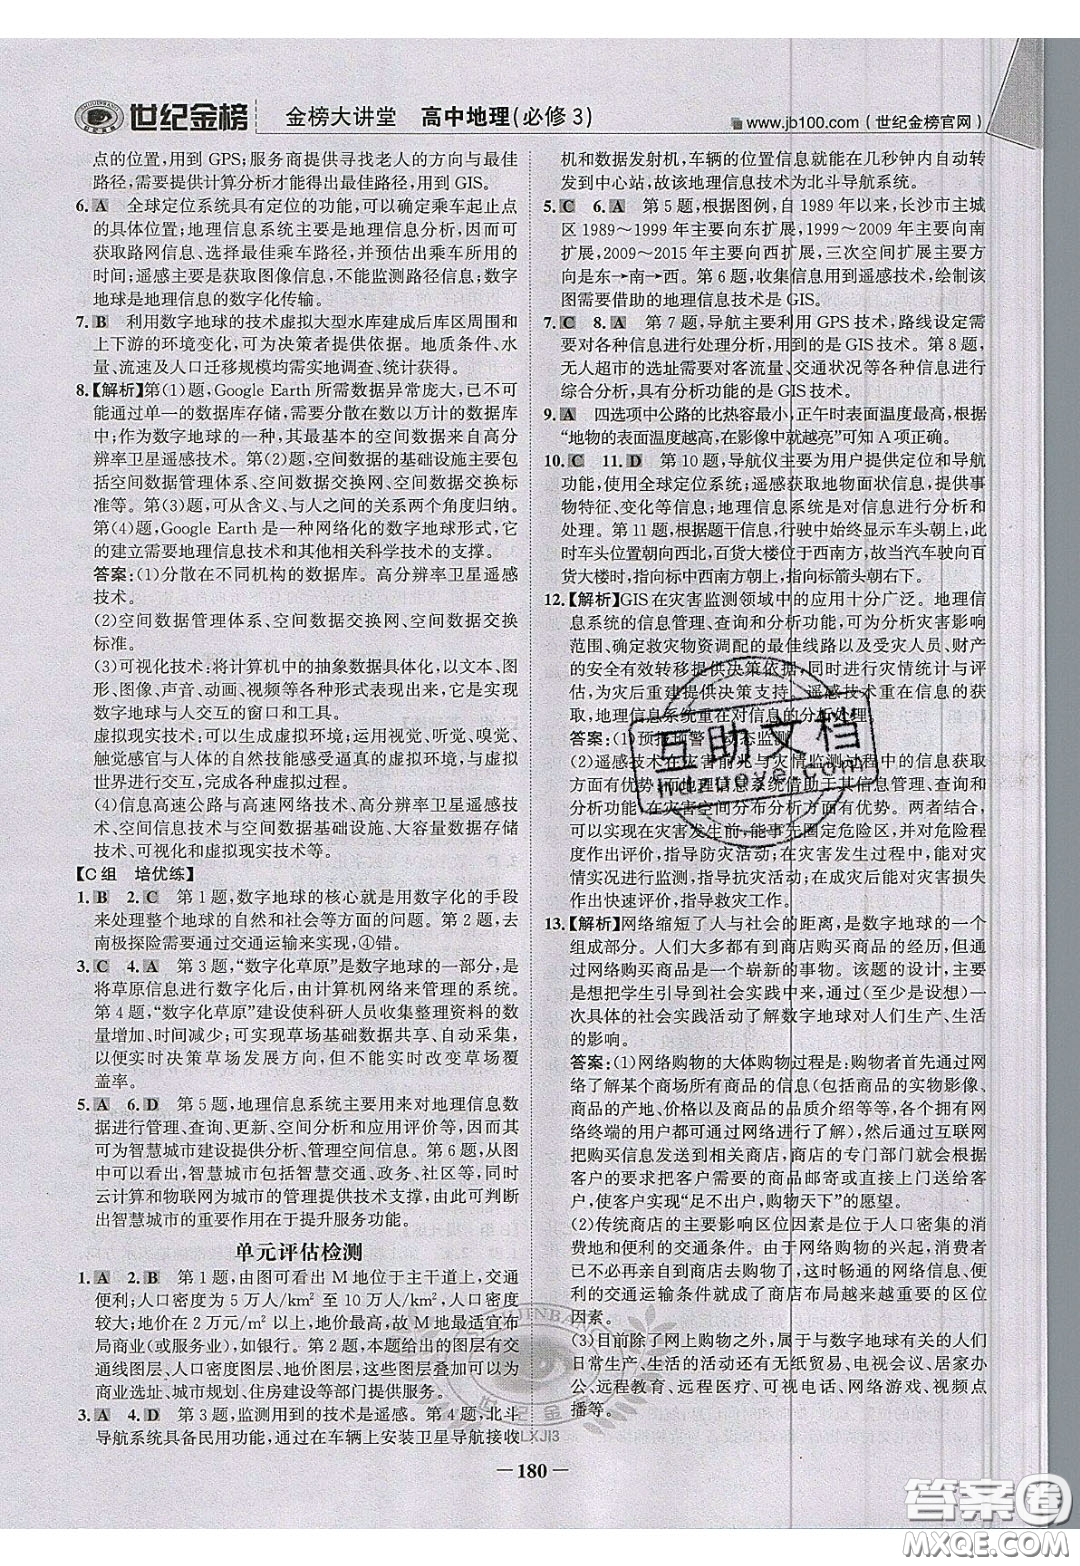 世纪金榜 金榜大讲堂 高中地理(必修3)
www.jb100.com(世纪金榜官网)
点的位置,用到GPS;服务商提供寻找老人的方向与最佳
路径,需要提供计算分析才能得出最佳路径,用到GIS。
6. A 全球定位系统具有定位的功能,可以确定乘车起止点
的具体位置;地理信息系统主要是地理信息分析,因此可
获取路网信息、提供最佳乘车路径,并预估出乘车所用的
时间;遥感主要是获取图像信息,不能监测路径信息;数字
地球是地理信息的数字化传输。
7. B 利用数字地球的技术虚拟大型水库建成后库区周围和
上下游的环境变化,可为决策者提供依据。地质条件、水
量、流速及人口迁移规模均需实地调查、统计获得。
8.【解析】第(1)题,Google Earth 所需数据异常庞大,已不可
能通过单一的数据库存储,需要分散在数以万计的数据库
中;作为数字地球的一种,其最基本的空间数据来自高分
辨率卫星遥感技术。第(2)题,空间数据的基础设施主要包
括空间数据管理体系、空间数据交换网、空间数据交换标
准等。第(3)题,可从含义、与人之间的关系两个角度归纳。
第(4)题,Google Earth 是一种网络化的数字地球形式,它
的建立需要地理信息技术和其他相关科学技术的支撑。
答案:(1)分散在不同机构的数据库。高分辨率卫星遥感
技术。
(2)空间数据管理体系、空间数据交换网、空间数据交换
标准。
(3)可视化技术,将计算机中的抽象数据具体化,以文本、图
像、图形、声音、动画、视频等各种形式表现出来,它是实现
数字地球与人交互的窗口和工具。
虚拟现实技术:可以生成虚拟环境;运用视觉、听觉、嗅觉、
触觉感官与人体的自然技能感受逼真的虚拟环境,与虚拟
世界进行交互,完成各种虚拟过程。
(4)信息高速公路与高速网络技术、高分辨率卫星遥感技
术、空间信息技术与空间数据基础设施、大容量数据存储
技术、可视化和虚拟现实技术等。
【C组 培优练】
1. B 2. C 第1题,数字地球的核心就是用数字化的手段
来处理整个地球的自然和社会等方面的问题。第2题,去
南极探险需要通过交通运输来实现,④错。
3. C 4. A 第3题,“数字化草原”是数字地球的一部分,是
将草原信息进行数字化后,由计算机网络来管理的系统。
第4题,“数字化草原”建设使科研人员收集整理资料的数
量增加、时间减少;可实现草场基础数据共享、自动采集,
以便实时决策草场发展方向,但不能实时改变草场覆
盖率。
5. A 6. D 第5题,地理信息系统主要用来对地理信息数
据进行管理、查询、更新、空间分析和应用评价等,因而其
可为智慧城市建设提供分析、管理空间信息。第6题,从图
中可以看出,智慧城市包括智慧交通、政务、社区等,同时
云计算和物联网为城市的管理提供技术支撑,由此可判断
出智慧城市的重要作用在于提升服务功能。
单元评估检测
1. A 2. B 第1题,由图可看出M地位于主干道上,交通
便利;人口密度为5万人/km² 至10万人/km²,人口密度
较大;地价在2万元/m² 以上,地价最高,故M地最适宜布
局商业(或服务业),如银行。第2题,本题给出的图层有交
通线图层、人口密度图层、地价图层,这些图层叠加可以为
商业选址、城市规划、住房建设等部门提供服务。
3. A 4. D 第3题,监测用到的技术是遥感。第4题,北斗
导航系统具备民用功能,通过在车辆上安装卫星导航接收
机和数据发射机,车辆的位置信息就能在几秒钟内自动转
发到中心站,故该地理信息技术为北斗导航系统。
5. C 6. A 第5题,根据图例,自1989年以来,长沙市主城
区1989～1999年主要向东扩展,1999～2009年主要向南
扩展,2009～2015年主要向西扩展,三次空间扩展主要方
向是东→南→西。第6题,收集信息用到遥感技术,绘制该
图需要借助的地理信息技术是GIS。
7. C 8. A 第7题,导航主要利用GPS技术,路线设定需
要对各种信息进行处理分析,用到的是GIS技术。第8题,
无人超市的选址需要对客流量、交通状况等各种信息进行
综合分析,具有分析功能的是GIS技术。
9. A 四选项中公路的比热容最小,正午时表面温度最高,根据
“地物的表面温度越高,在影像中就越亮”可知A项正确。
10. C 11. D 第10题,导航仪主要是为用户提供定位和导航
功能,使用全球定位系统;遥感获取地物面状信息,提供事
物特征、变化等信息;地理信息系统是对信息进行分析和
处理。第11题,根据题干信息,行驶中始终显示车头朝上,
此时车头位置朝向西北,百货大楼位于西南方,故当汽车驶向百
货大楼时,指向标中西南方朝上,指向标箭头朝右下。
12.【解析】GIS在灾害监测领域中的应用十分广泛。地理信
息系统的信息管理、查询和分析功能,可为分析灾害影响
范围、确定救灾物资调配的最佳线路以及受灾人员、财产
的安全有效转移提供决策依据,同时可进行灾情统计与评
估,为灾后重建提供决策支持。遥感技术重在信息的获
取,地理信息系统重在对信息的分析处理。
答案:(1)预报预警、动态监测
(2)遥感技术在灾害前兆与灾情监测过程中的信息获取
方面有优势,而地理信息系统借助于其信息管理、查询和
分析功能,在灾害空间分布分析方面有优势。两者结合,
可以实现在灾害发生前,能事先圈定危险区,并对危险程
度作出评价,指导防灾活动;在灾害发生过程中,能对灾
情状况进行适时监测,指导抗灾活动;在灾后对灾害损失
作出快速评价,指导救灾工作。
13.【解析】网络缩短了人与社会的距离,是数字地球的一个
组成部分。人们大多都有到商店购买商品的经历,但通
过网络购买商品是一个崭新的事物。该题的设计,主要
是想把学生引导到社会实践中来,通过(至少是设想)一
次具体的社会实践活动了解数字地球对人们生产、生活
的影响。
答案:(1)网络购物的大体购物过程是:购物者首先通过网
络了解某个商场所有商品的信息(包括商品的实物影像、
商品的产地、价格以及商品的品质介绍等等,各个拥有网
络终端的用户都可通过网络进行了解),然后通过互联网
把购买信息发送到相关商店,商店的专门部门就会根据
客户的要求把特定的商品邮寄或直接送到客户手中,从
而使客户实现“足不出户,购物天下”的愿望。
(2)传统商店的主要影响区位因素是位于人口密集的消
费地和便利的交通条件。由于网络购物的兴起,消费者
已不必再亲自到商店购物,这时畅通的网络信息、便
利的交通运输条件就成了商店布局越来越重要的区位
因素。
(3)目前除了网上购物之外,属于与数字地球有关的人们
日常生产、生活的活动还有无纸贸易、电视会议、居家办
公、远程教育、远程医疗、可视电话、网络游戏、视频点
播等。
互助文档
hdzuoye.com
世纪金榜
LXJI3
— 180 —
答案圈
MXQE.COM